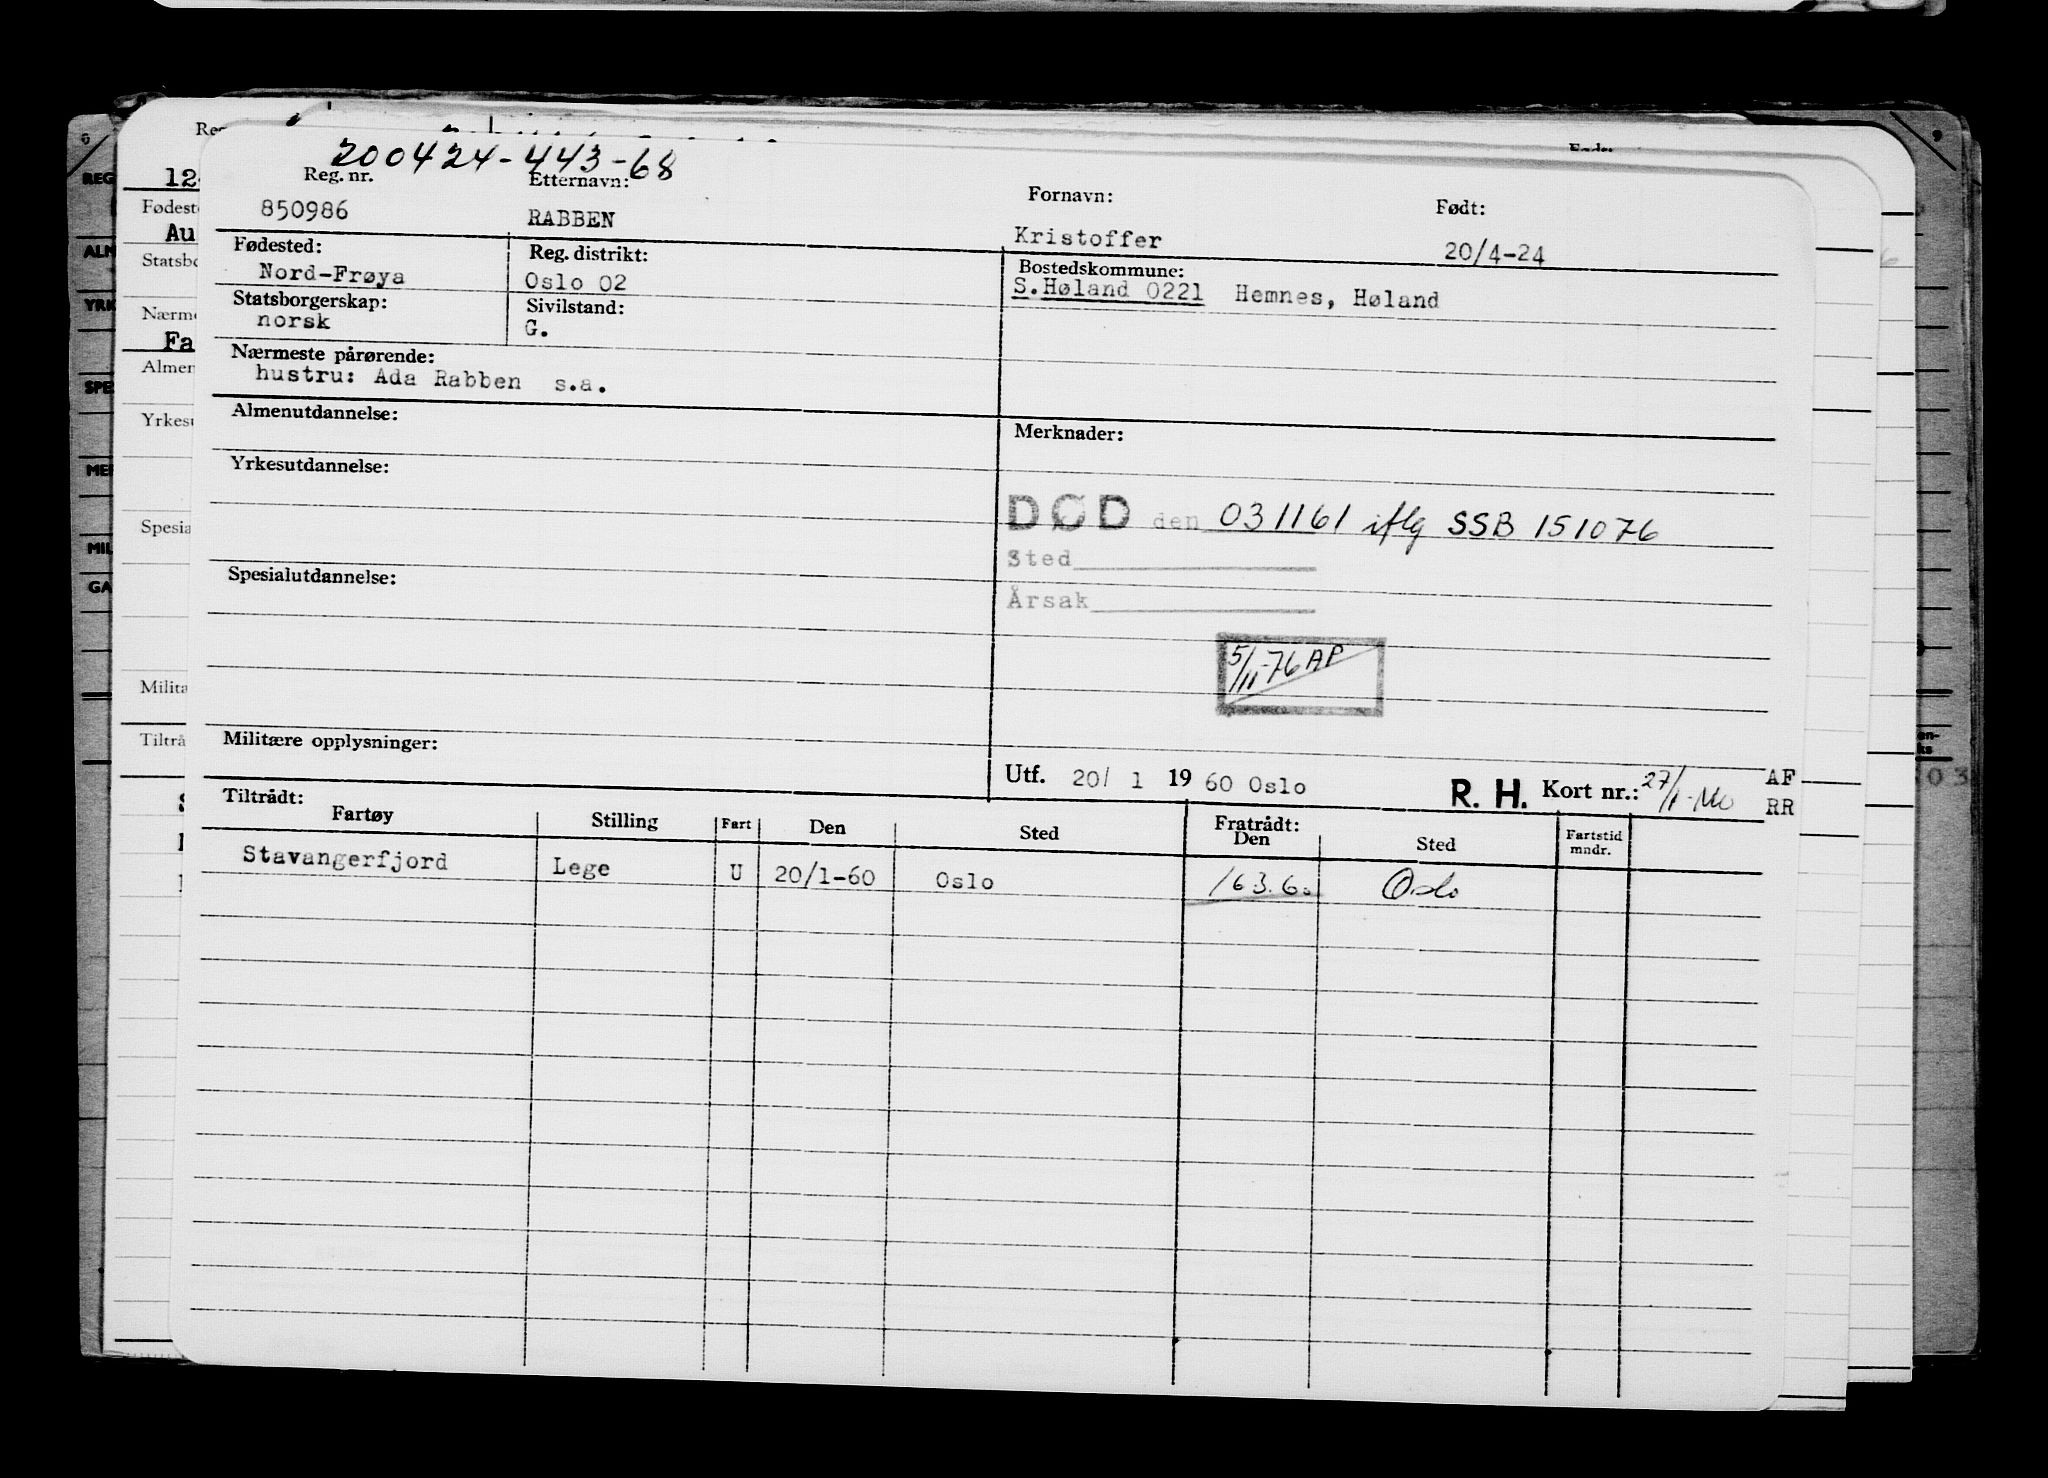 200424-443-68
Reg. nr. Etternavn: Fornavn: Født:
850986 RABBEN Kristoffer 20/4-24
Fødested: Reg. distrikt: Bostedskommune:
Nord-Frøya Oslo 02 S.Høland 0221 Hemnes, Høland
Statsborgerskap: Sivilstand:
norsk G.
Nærmeste pårørende:
hustru: Ada Rabben s.a.
Almenutdannelse: Merknader:
Yrkesutdannelse:
DØD den 031161 iflg SSB 151076
Sted
Spesialutdannelse:
Årsak
5/11-76 AP
Militære opplysninger:
Utf. 20/ 1 19 60 Oslo R. H. Kort nr.: 27/1- AF
RR
Tiltrådt: Fratrådt:
Fartøy Stilling Fart Den Sted Den Sted Fartstid mndr.
Stavangerfjord Lege U 20/1-60 Oslo 163.60 Oslo